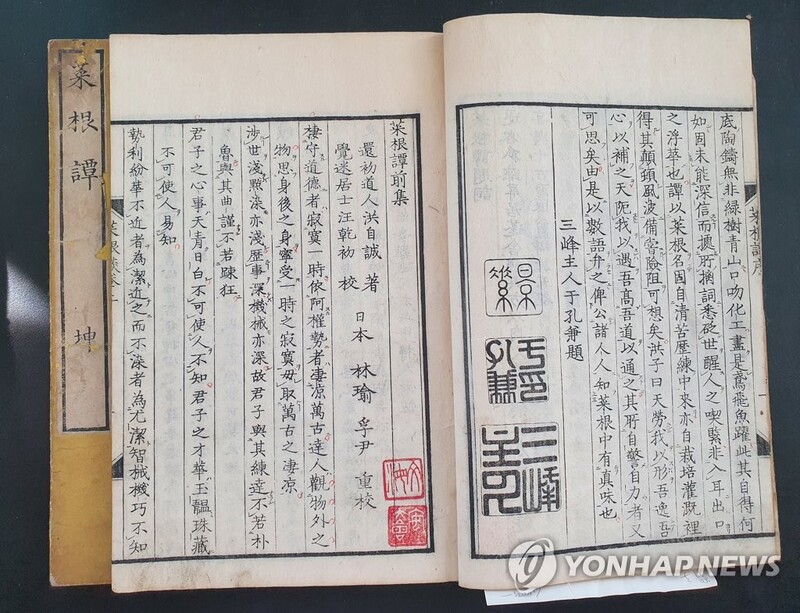 底陶鑄無非綠樹青山口吻化工盡是鳶飛魚躍此其自得何
如固未能深信而據所摛詞悉砭世醒人之喫緊非入耳出口
之浮華也譚以菜根名固自清苦歷練中來亦自栽培灌溉裡
得其顛頓風波備嘗險阻可想矣洪子曰天勞我以形吾逸吾
心以補之天阨我以遇吾高吾道以通之其所自警自力者又
可思矣由是以數語弁之俾公諸人人知菜根中有真味也
三峰主人于孔兼題
菜根譚序
菜根譚前集
還初道人洪自誠 著
覺迷居士汪乾初 校
日本 林瑜 孚尹 重校
棲守道德者寂寞一時依阿權勢者凄凉萬古達人觀物外之
物思身後之身寧受一時之寂寞毋取萬古之凄凉
涉世淺點染亦淺歷事深機械亦深故君子與其練達不若朴
魯與其曲謹不若踈狂
君子之心事天青日白不可使人不知君子之才華玉韞珠藏
不可使人易知
勢利紛華不近者為潔近之而不染者為尤潔智械機巧不知
菜根譚 坤
YONHAP NEWS